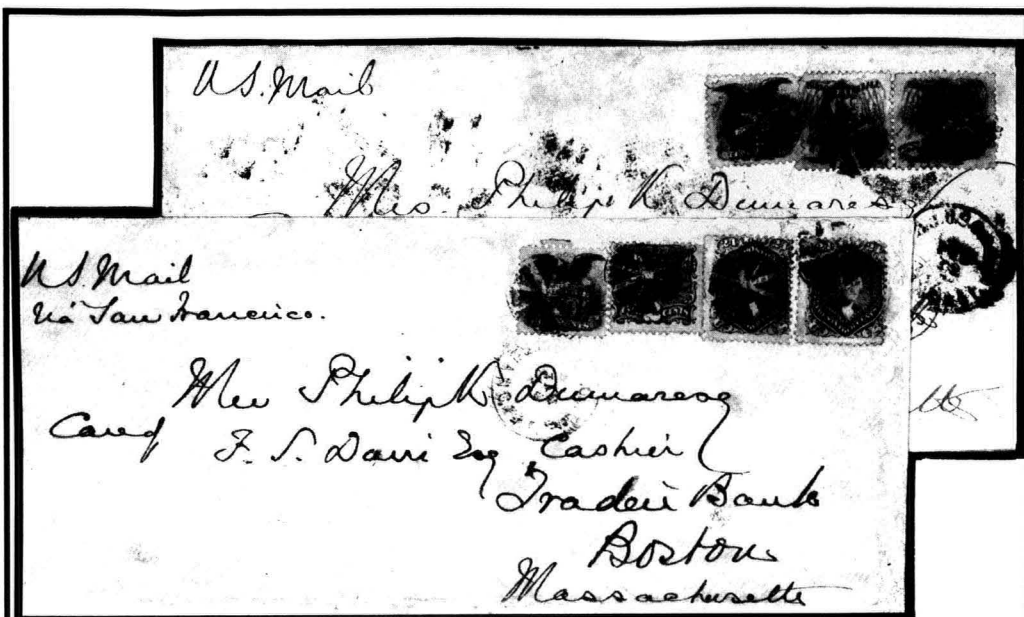 U.S. Mail
Mrs. Philip K. Dumaresq
U.S. Mail
Via San Francisco.
Mrs Philip K. Dumaresq
Care of
F. S. Davis Esq Cashier
Traders Bank
Boston
Massachusetts
tts